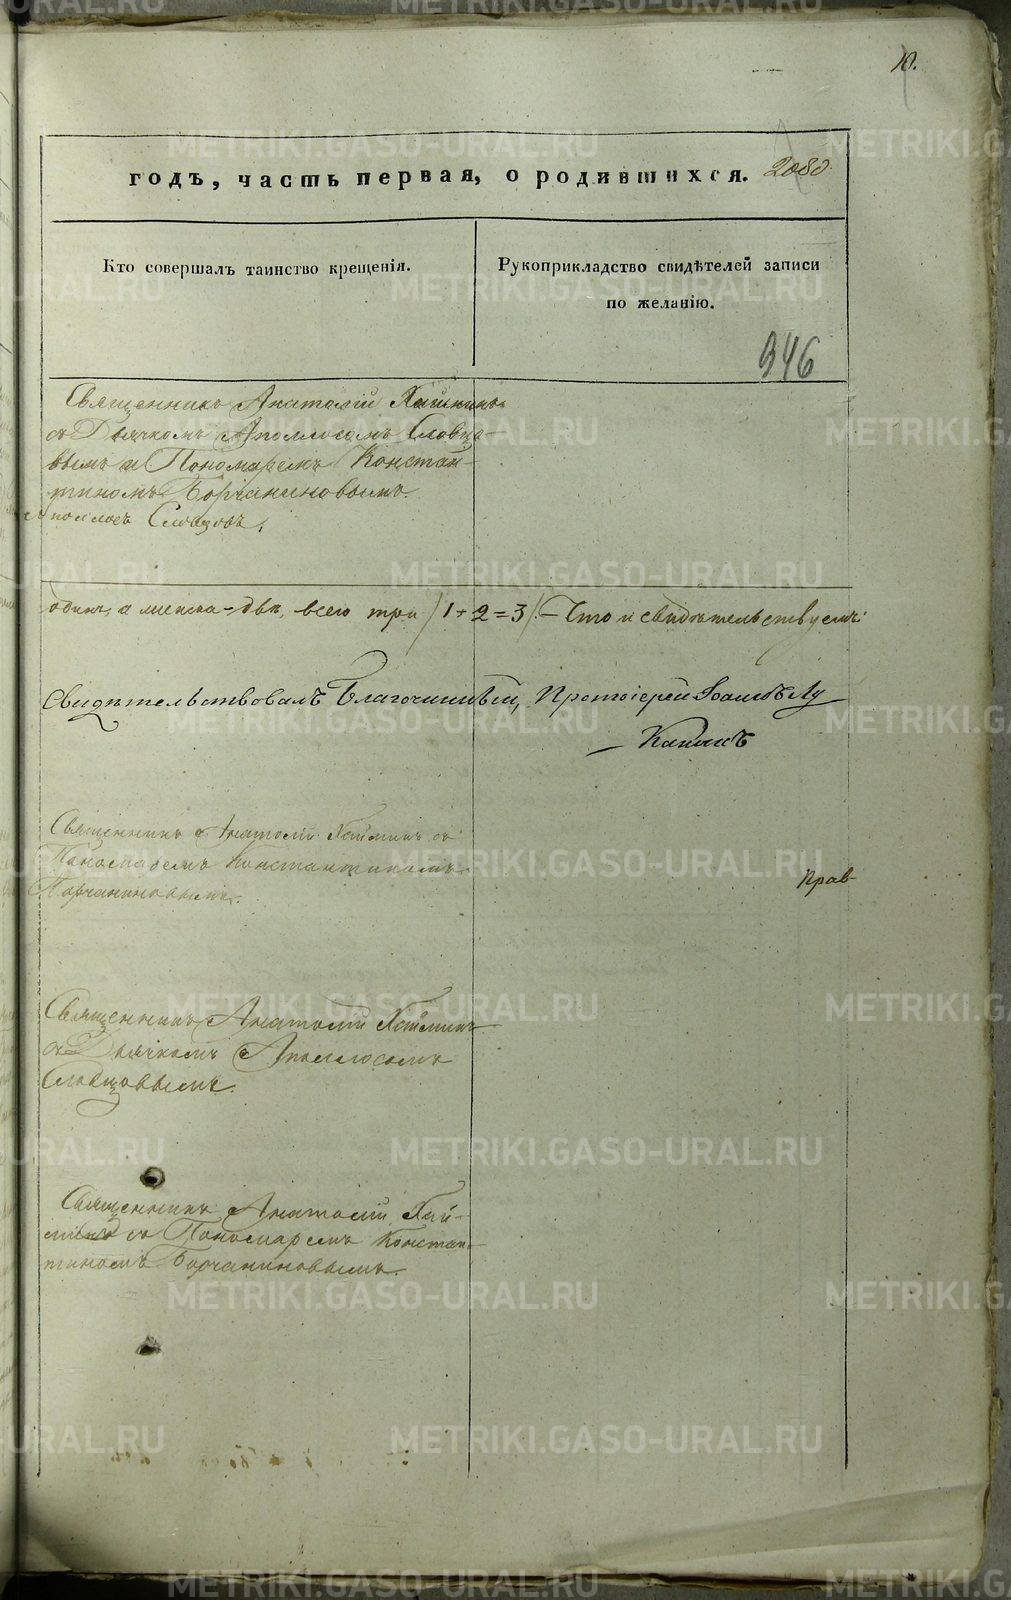 10.
годъ, часть первая, о родившихся. 208д
Кто совершалъ таинство крещенія.
Рукоприкладство свидѣтелей записи
по желанію.
346
Священникъ Анатолій Хайминъ
съ Дьячкомъ Аполлосомъ Словцо-
вымъ и Пономаремъ Констан-
тиномъ Борчаниновымъ.
Словцовъ.
одинъ, а женска - два, всего три /1+2=3/. - Что и свидѣтельствуемъ:
Свидѣтельствовалъ Благочинный, Протоіерей Іоаннъ Лу
Канинъ
Священникъ Анатолій Хайминъ съ
Пономаремъ Константиномъ
Борчаниновымъ.
прав-
Священникъ Анатолій Хайминъ
съ Дьячкомъ Аполлосомъ
Словцовымъ.
Священникъ Анатолій Хай-
минъ съ Пономаремъ Констан-
тиномъ Борчаниновымъ.
METRIKI.GASO-URAL.RU